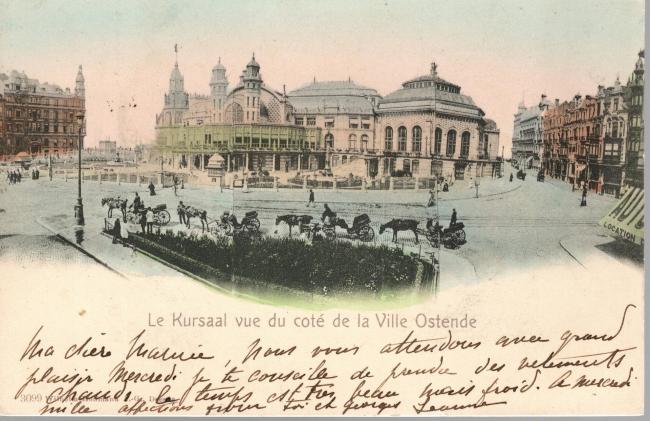 LOCATION
Le Kursaal vue du coté de la Ville Ostende
Ma chère Marie, Nous vous attendons avec grand
plaisir Mercredi je te conseille de prendre des vêtements
chauds le temps est très beau mais froid. A mercredi
3099
mille affections pour toi et Georges Jeanne